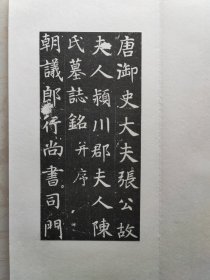 唐御史大夫張公故
夫人潁川郡夫人陳
氏墓誌銘并序
朝議郎行尚書司門